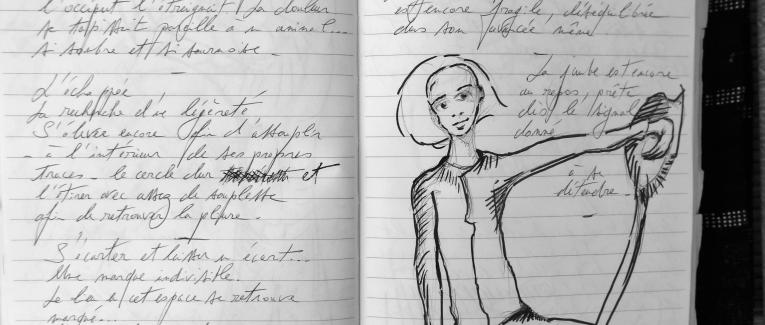 l'occupait l'étreignait. La douleur
se tapissait pareille à un animal...
si sombre et si sournoise.
L'échappée,
La recherche d'une légèreté
S'élever encore afin d'assouplir
- à l'intérieur de ses propres
traces - le cercle dur et
l'étirer avec assez de souplesse
afin de retrouver la
S'écarter et laisser un écart...
Une marque indivisible.
Le lien à cet espace se retrouve
marqué...
est encore fragile, déséquilibrée
dans son avancée même.
La jambe est encore
au repos, prête
dès le signal
donné,
à se
détendre.